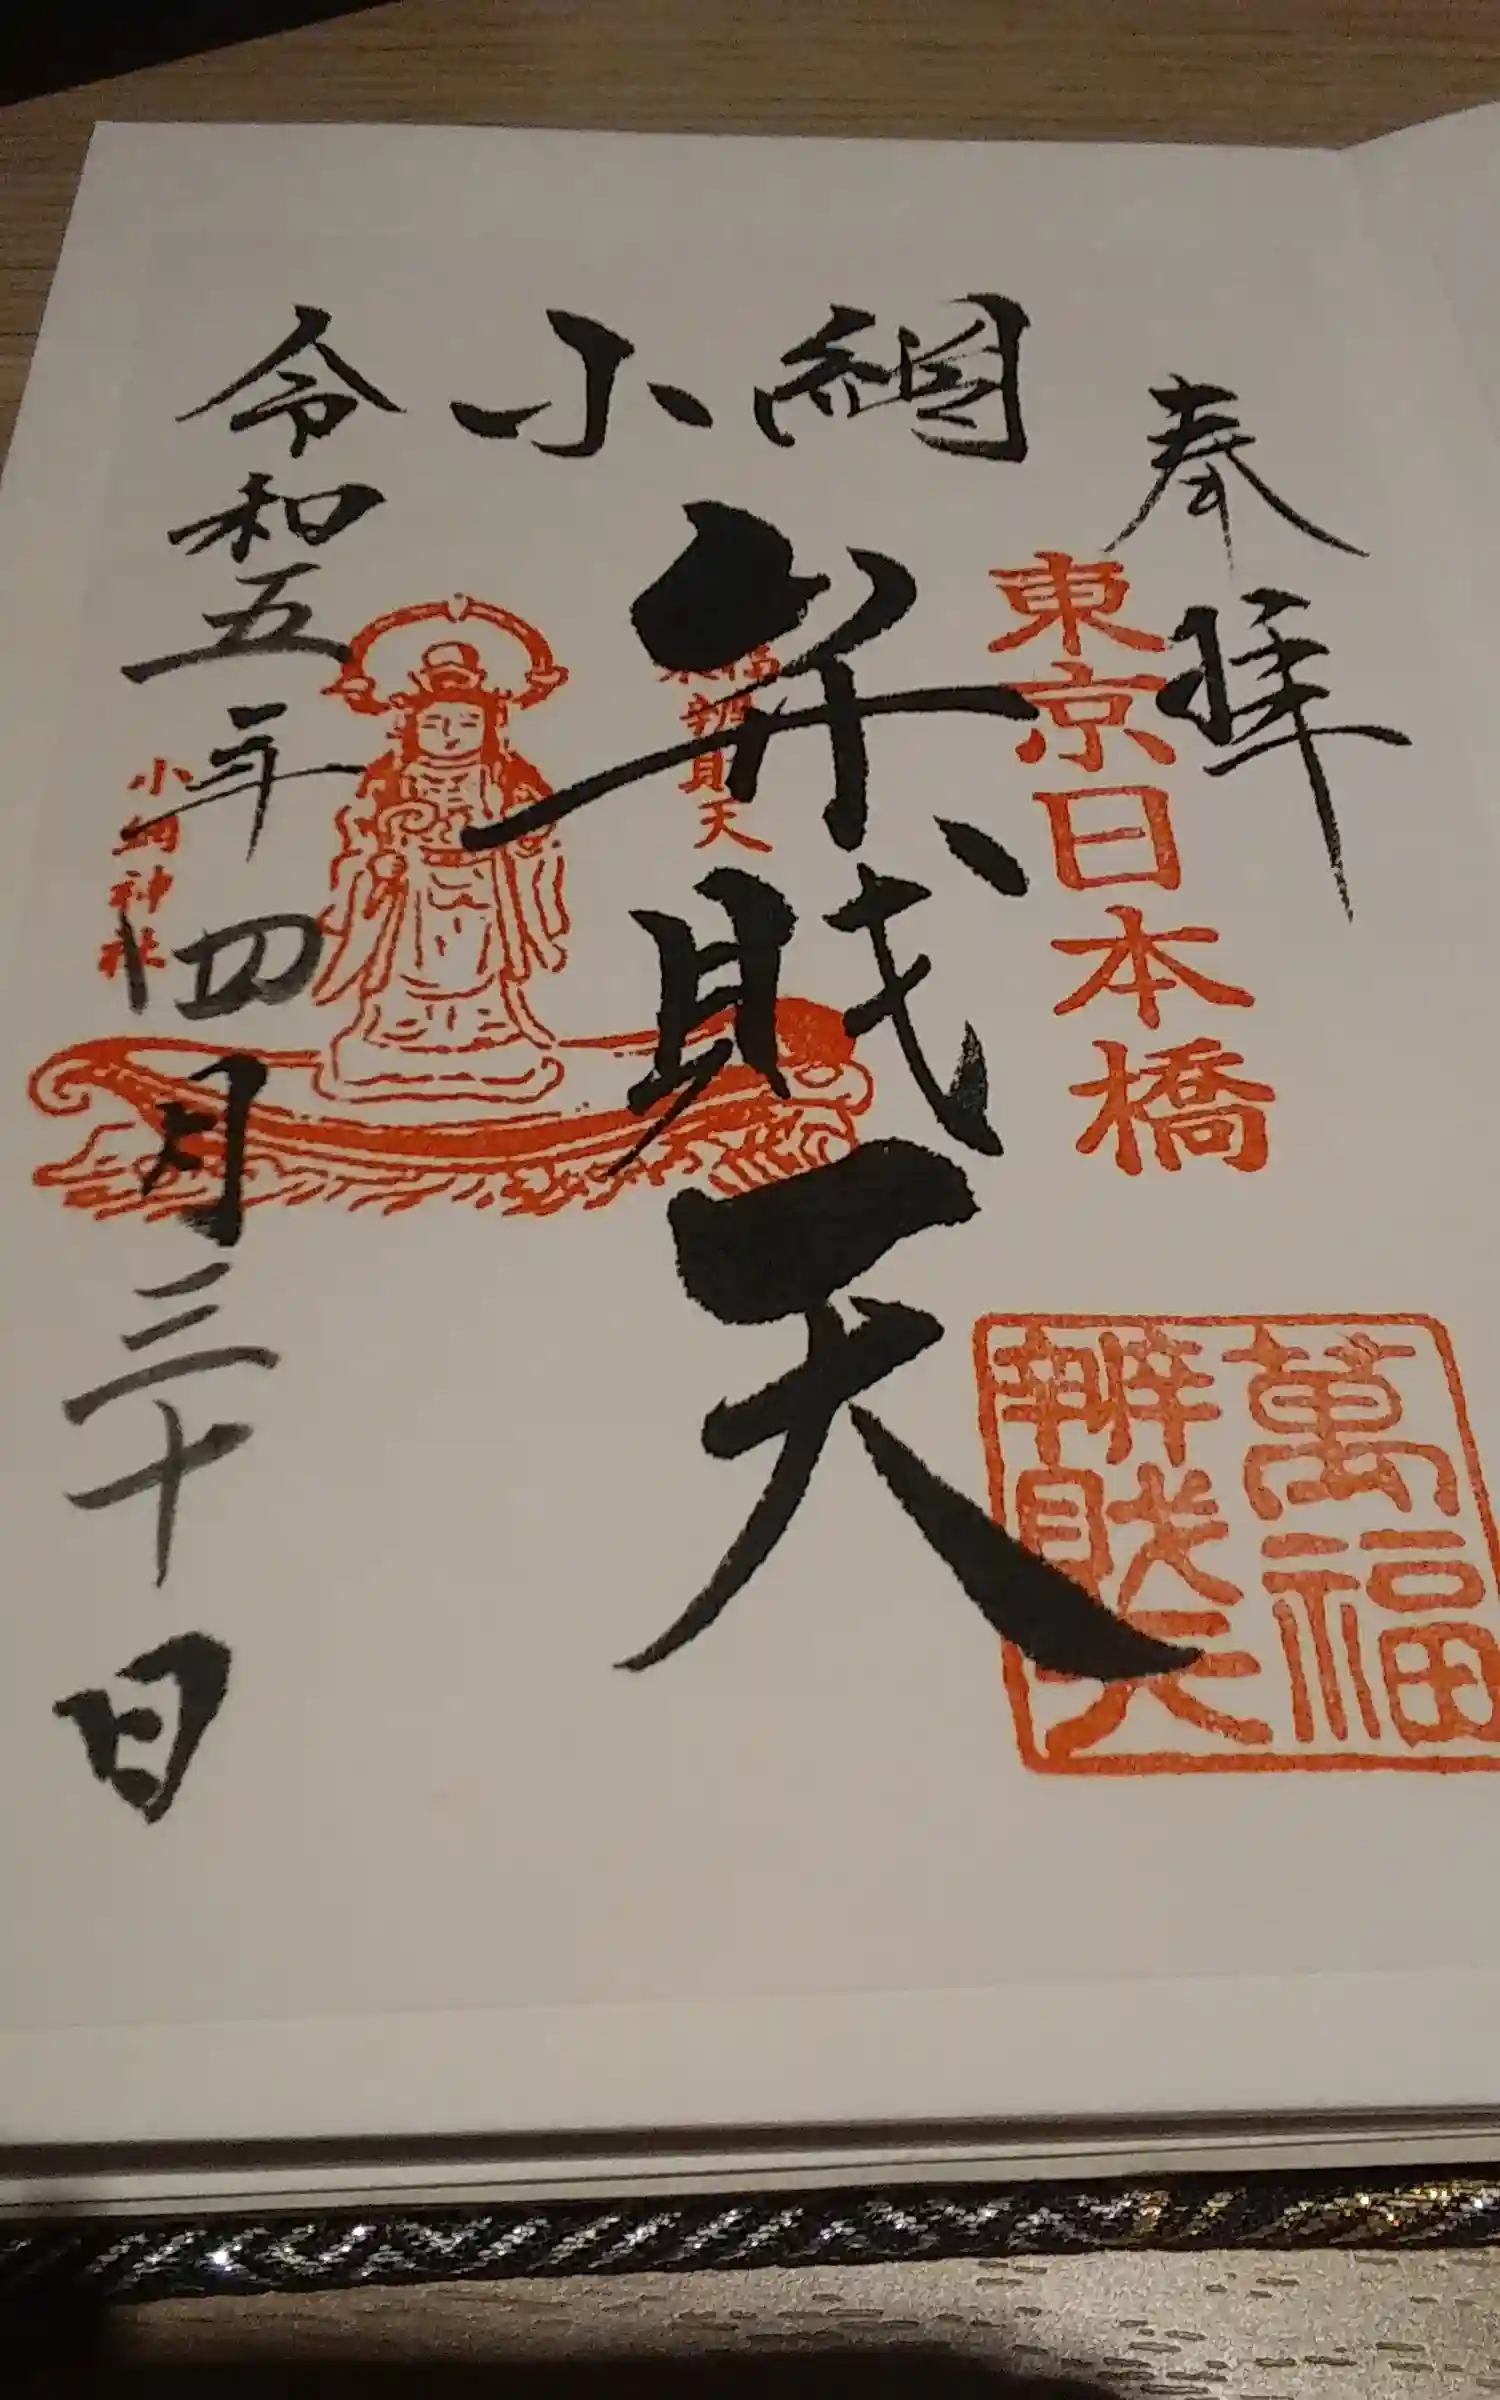 奉拝
東京日本橋
小網
弁財天
萬福
辨財天
福
辨財天
小網神社
令和五年四月三十日